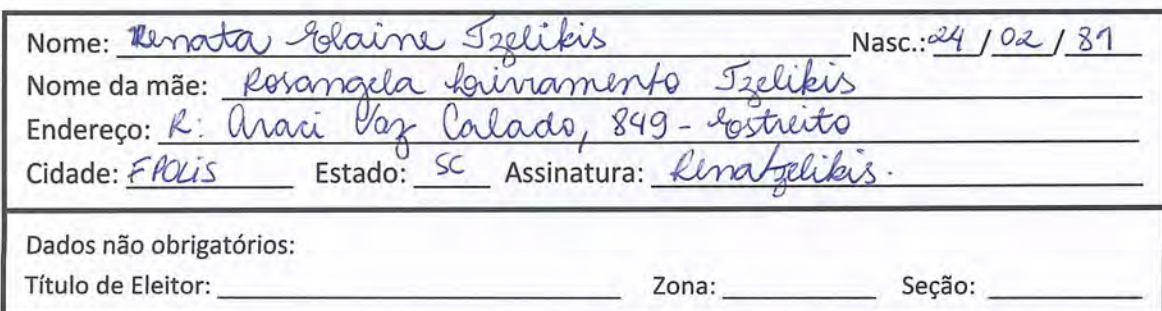 Nome: Renata Elaine Tzelikis Nasc.: 24 / 02 / 81
Nome da mãe: Rosangela Livramento Tzelikis
Endereço: R: Araci Vaz Calado, 849 - Estreito
Cidade: FPOLIS Estado: SC Assinatura: Renatzelikis.
Dados não obrigatórios:
Título de Eleitor: Zona: Seção: